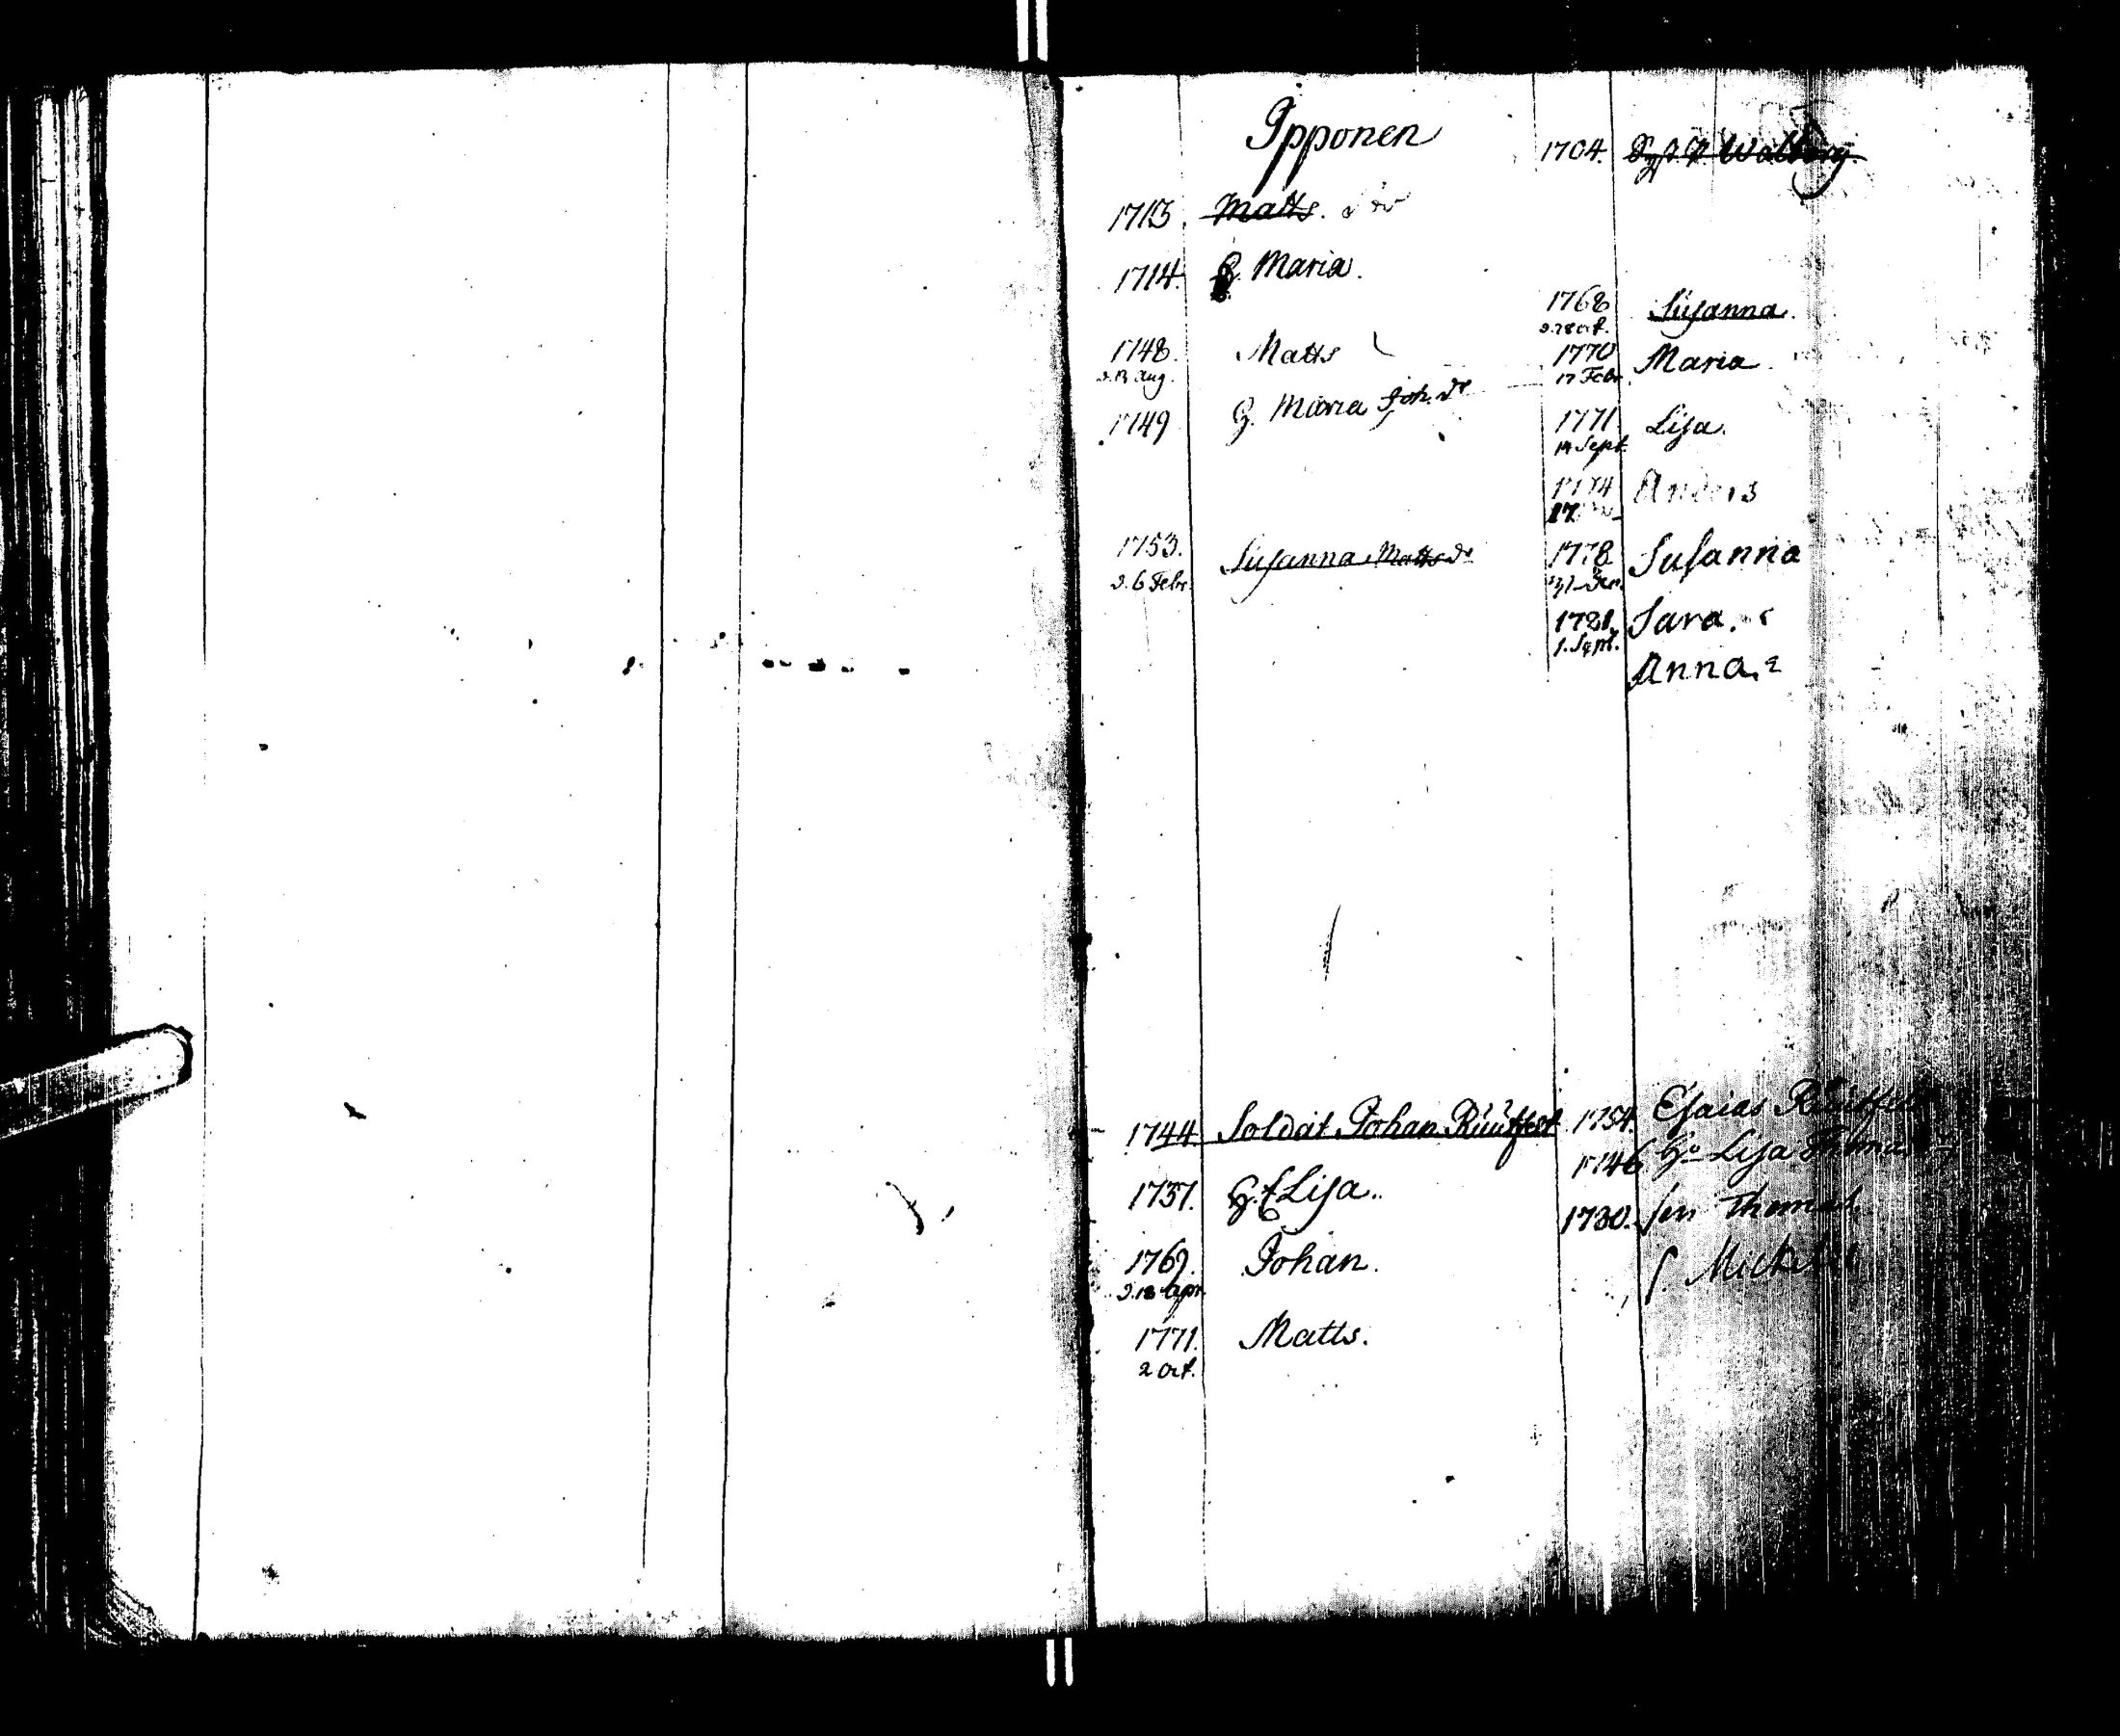 Ipponen
1713. Matts.
1714. H. Maria.
1748. Matts
d. 13 Aug.
1749 H. Maria Joh. dr
1753. Susanna Matts dr
d. 6 Febr.
1744. Soldat Johan Ruutfelt
1737. H. Lisa.
1769. Johan.
d. 18 Apr.
1771. Matts.
2 Oct.
1704. Walborg.
1768 Susanna.
d. 28 Oct.
1770 Maria
17 Febr.
1771 Lisa.
14 Sept.
1774 Anders
17
1778 Susanna
31
1781. Sara.
1. Sept.
Anna.
1754. Esaias Ruutfelt
1746 Ho Lisa
1780. son Thomas
s. Michel